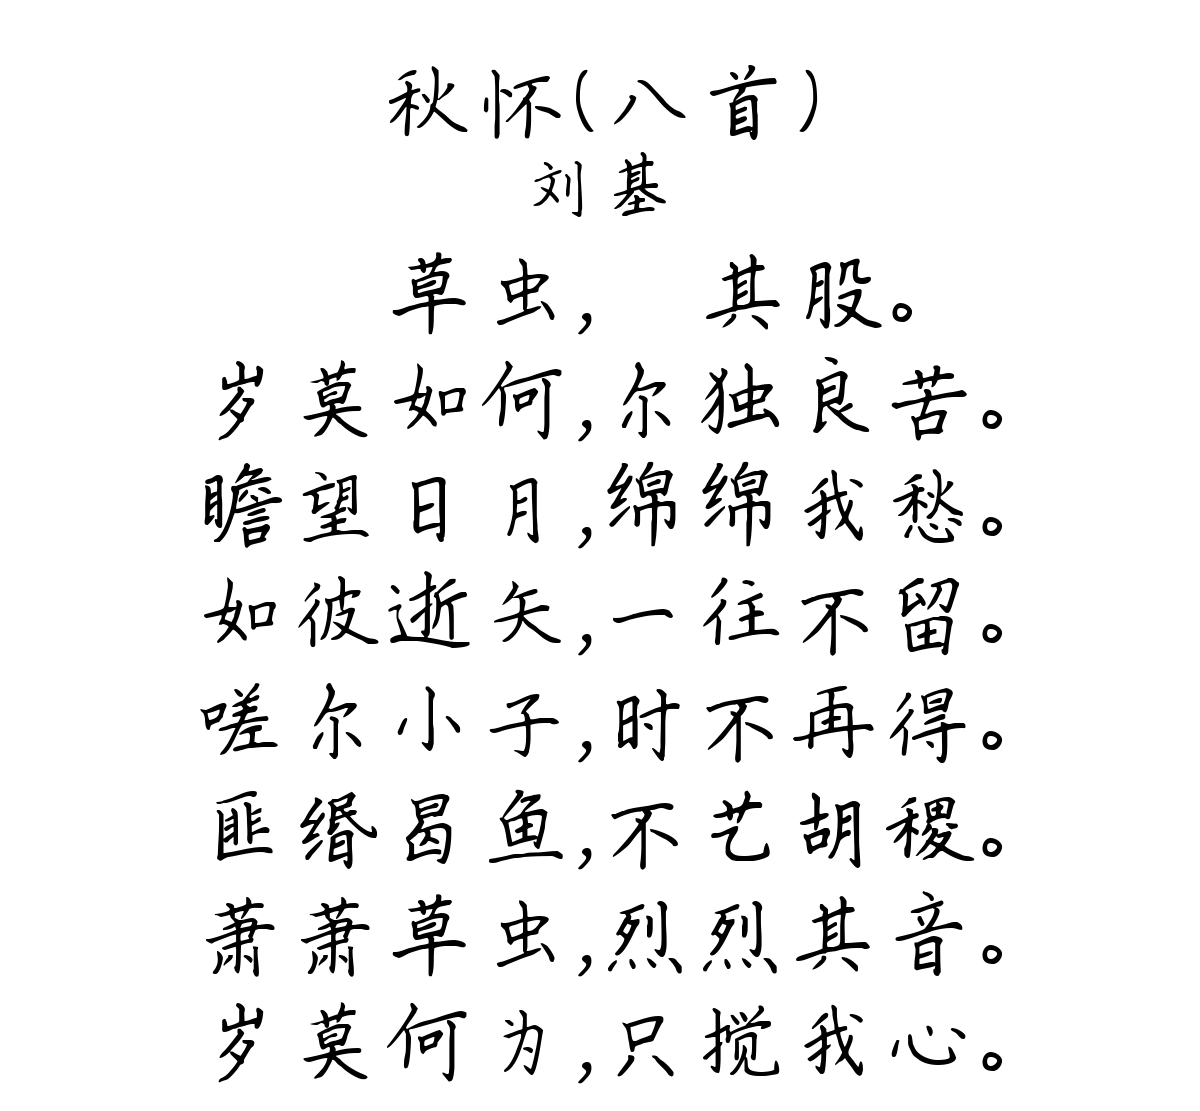 秋怀(八首)
刘基
草虫, 其股。
岁莫如何,尔独良苦。
瞻望日月,绵绵我愁。
如彼逝矢,一往不留。
嗟尔小子,时不再得。
匪缗曷鱼,不艺胡稷。
萧萧草虫,烈烈其音。
岁莫何为,只搅我心。